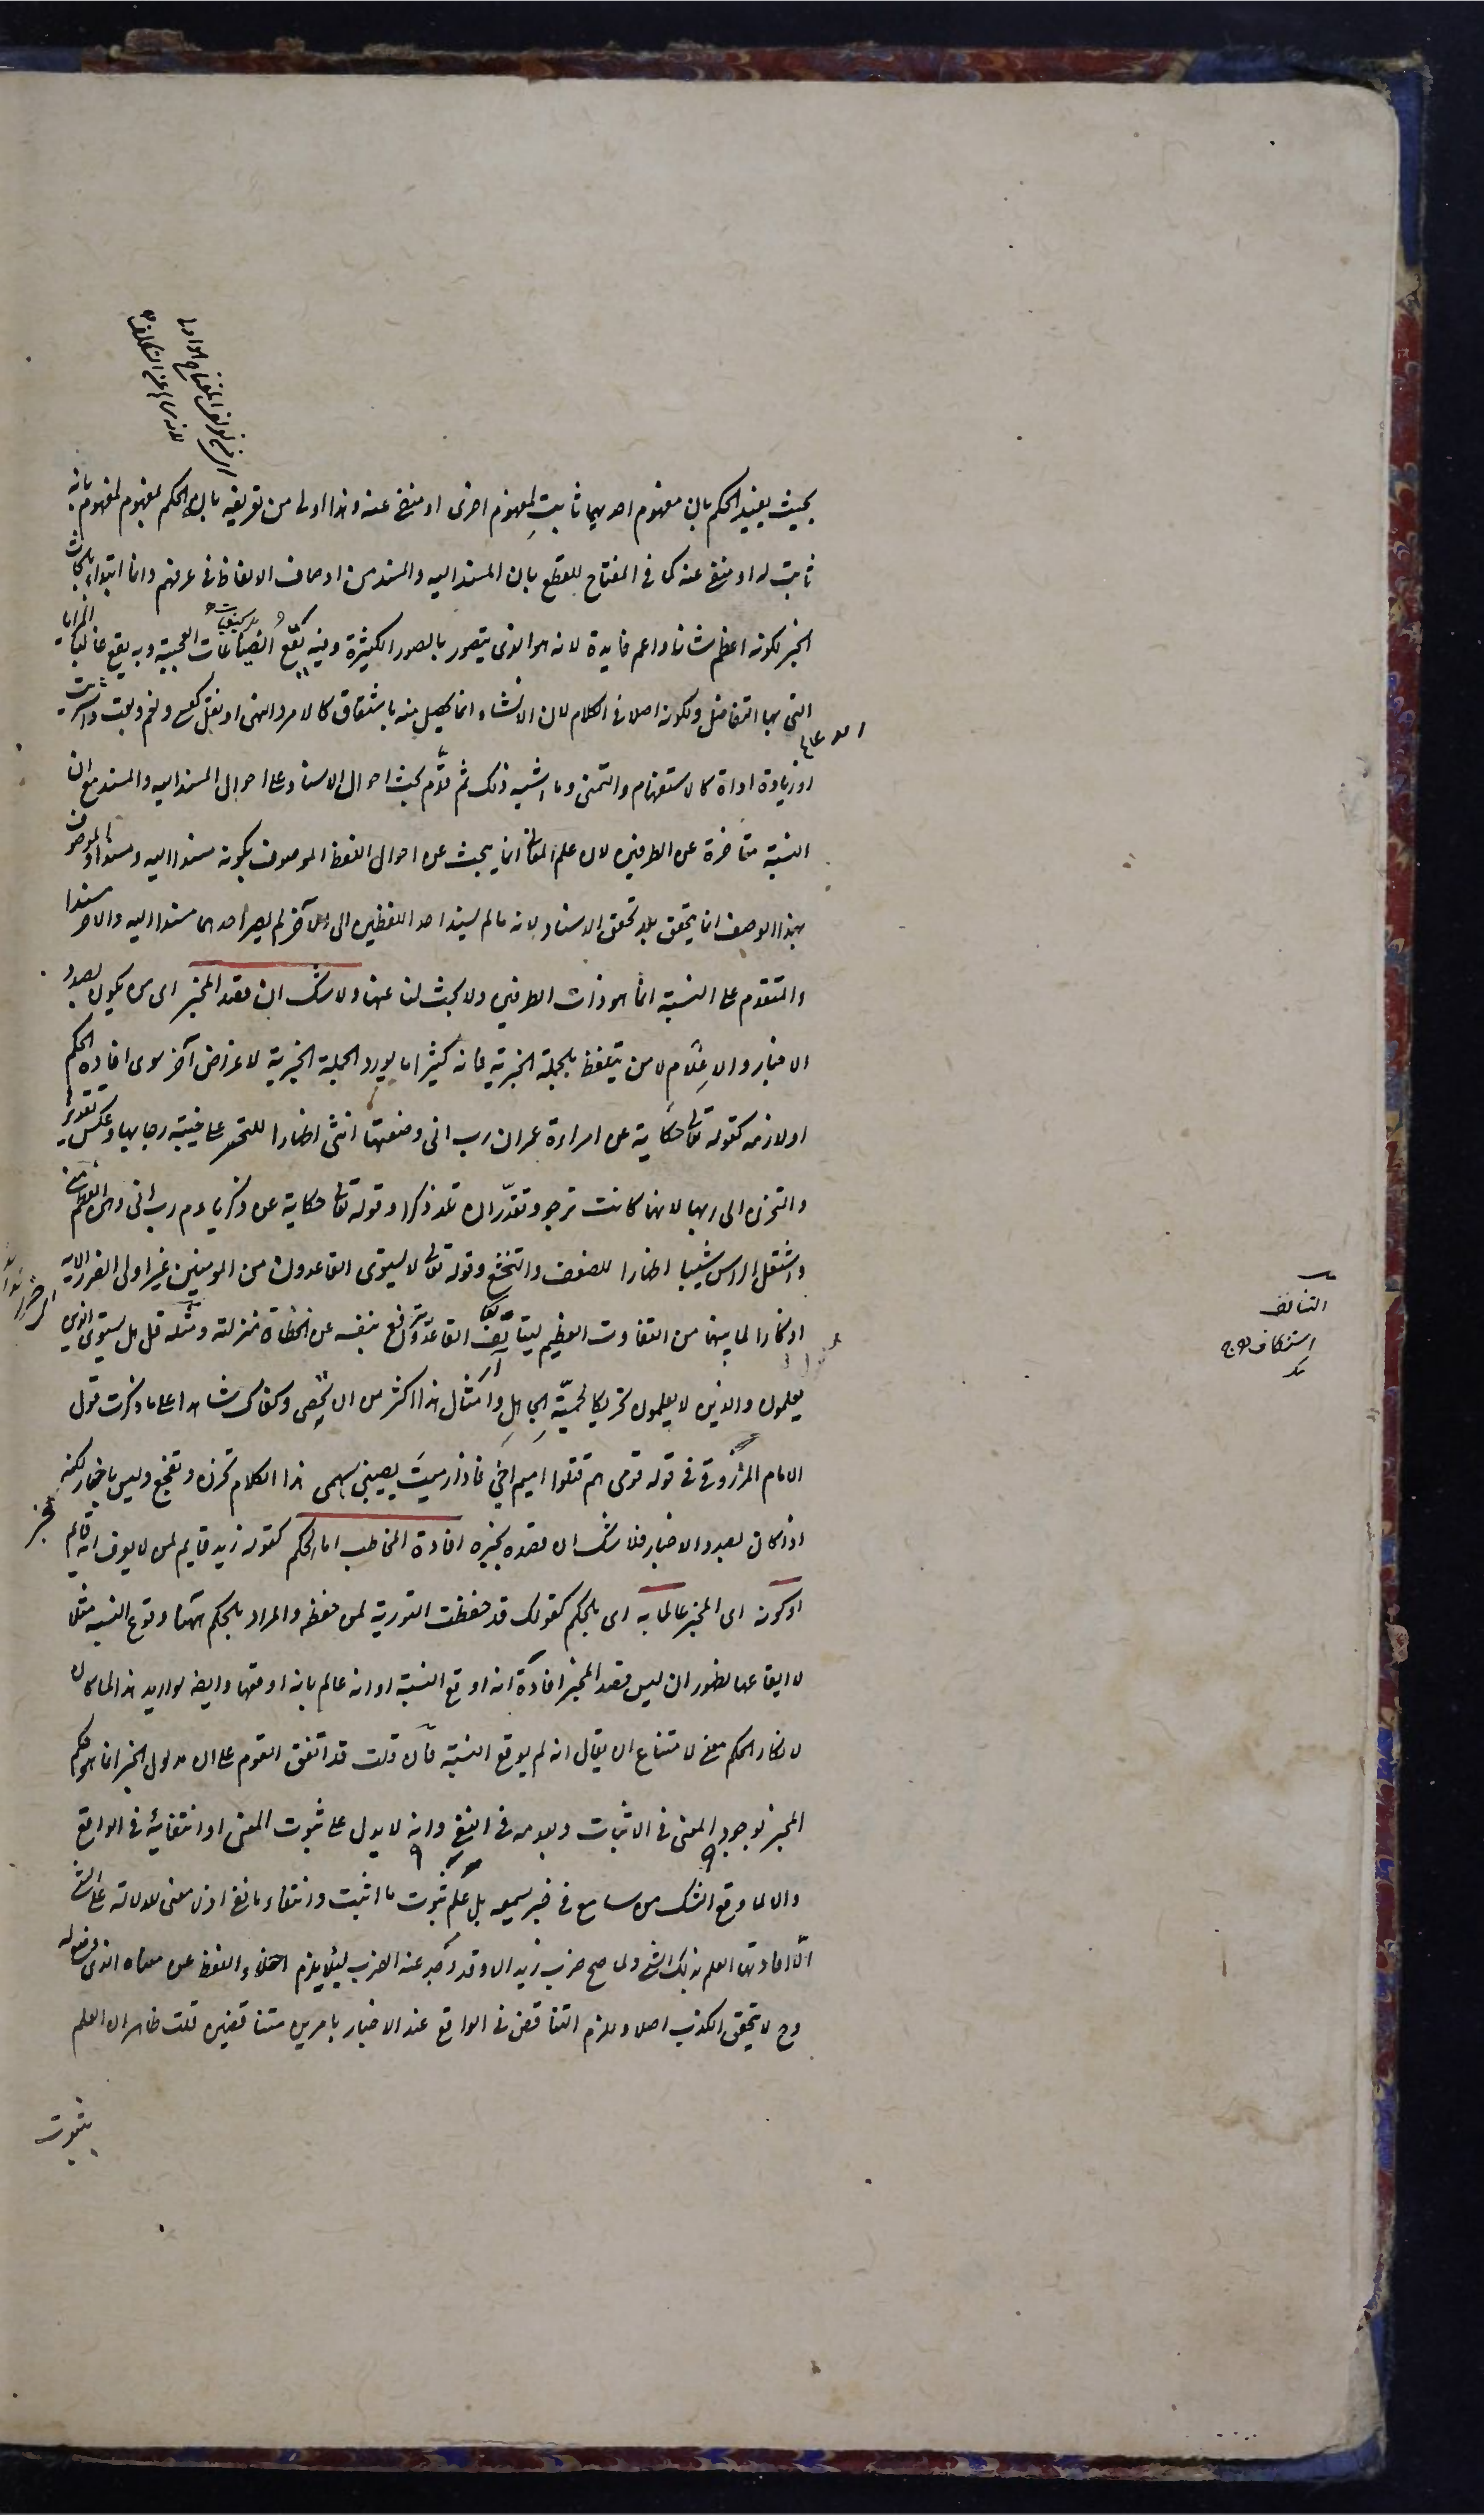 بحيث يفيد الحكم بان مفهوم احديهما ثابت لمفهوم اخرى او منفى عنه وهذا اولى من تعريفه بانه الحكم لمفهوم بمفهوم بانه
ثابت له او منفى عنه كما فى المفتاح للقطع بان المسند اليه والمسند من اوصاف الالفاظ فى عرفهم وانما ابتداء بابحاث
الخبر لكونه اعظم شانا واعم فايدة لانه هو الذى يتصور بالصور الكثيرة وفيه يقع الصناعات العجيبة وبه يقع غالبا المزايا
التى بها التفاضل ولكونه اصلا فى الكلام لان الانشاء انما يحصل منه باشتقاق كالامر والنهى او نقل كعسى ونعم وبعت واشتريت
او زيادة اداة كالاستفهام والتمنى وما اشبه ذلك ثم قدّم بحث احوال الاسناد على احوال المسند اليه والمسند مع ان
النسبة متاخرة عن الطرفين لان علم المعانى انما يبحث عن احوال اللفظ الموصوف بكونه مسندا اليه ومسندا والموصوف
بهذا الوصف انما يتحقق بعد تحقق الاسناد لانه مالم يسند احد اللفظين الى الآخر لم يصر احدهما مسندا اليه والاخر مسندا
والمتقدم على النسبة انما هو ذات الطرفين ولا بحث لنا عنها ولا شك ان قصد المخبر اى من يكون بصدد
الاخبار والاعلام لا من يتلفظ بالجملة الخبرية فانه كثيرا ما يورد الجملة الخبرية لاغراض آخر سوى افادة الحكم
او لازمه كقوله تعالى حكاية عن امراءة عمران رب انى وضعتها انثى اظهارا للتحسر على خيبة رجايها وعكس تقديرها
والتحزن الى ربها لانها كانت ترجو وتقدّر ان تلد ذكرا وقوله تعالى حكاية عن زكرياء عم رب انى وهن العظم منى
واشتعل الراس شيبا اظهارا للضعف والتخشع وقوله تعالى لا يستوى القاعدون من المومنين غير اولى الضرر الاية
اذكارا لما بينهما من التفاوت العظيم ليتانّف القاعد ويترفع بنفسه عن انحطاط منزلته ومثله قل هل يستوى الذين
يعلمون والذين لا يعلمون تحريكا لحميّة الجاهل وامثال هذا اكثر من ان يحصى وكفاك شاهدا على ما ذكرت قول
الامام المرزوقى فى قوله قومى هم قتلوا اميم اخى فاذا رميت يصيبنى سهمى هذا الكلام تحزن وتفجع وليس باخبار لكنه
اذا كان بصدد الاخبار فلا شك ان قصده بخبره افادة المخاطب اما الحكم كقوله زيد قايم لمن لا يعرف انه قايم
او كونه اى المخبر عالما به اى بالحكم كقولك قد حفظت التورية لمن حفظه والمراد بالحكم ههنا وقوع النسبة مثلا
لا ايقاعها لظهور ان ليس قصد المخبر افادة انه اوقع النسبة او انه عالم بانه اوقعها وايضا لو اريد هذا لما كان
لانكار الحكم معنى لامتناع ان يقال انه لم يوقع النسبة فان قلت قد اتفق القوم على ان مدلول الخبر انما هو حكم
المخبر بوجود المعنى فى الاثبات وبعدمه فى النفى وانه لا يدل على ثبوت المعنى او انتفائه فى الواقع
والا لما وقع الشك من سامع فى خبر يسمعه بل علم ثبوت ما اثبت وانتفاء ما نفى اذ لا معنى للدلالة على الشى
الّا افادتها العلم بذلك الشى ولما صح ضرب زيد الا وقد وجد عنه الضرب ليئلا يلزم اخلاء اللفظ عن معناه الذى وضع له
وح لا يتحقق الكذب اصلا وللزم التناقض فى الواقع عند الاخبار بامرين متناقضين قلت ظاهر ان العلم
بثبوت
التانف